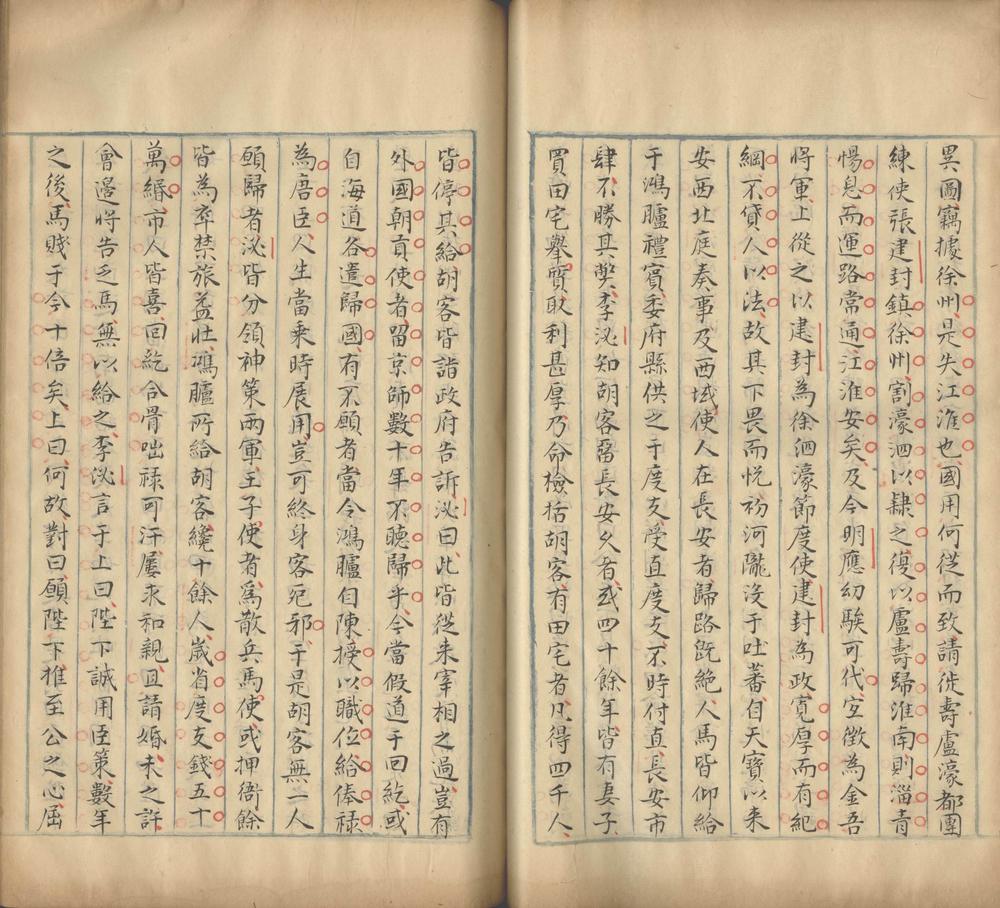 異圖竊據徐州是失江淮也國用何從而致請徙壽盧濠都團
練使張建封鎮徐州割濠泗以隸之復以盧壽歸淮南則淄青
惕息而運路常通江淮安矣及今明應幼騃可代宜徵為金吾
將軍上從之以建封為徐泗濠節度使建封為政寬厚而有紀
綱不貸人以法故其下畏而悅初河隴沒于吐蕃自天寶以来
安西北庭奏事及西域使人在長安者歸路既絶人馬皆仰給
于鴻臚禮賓委府縣供之于度支受直度支不時付直長安市
肆不勝其弊李泌知胡客留長安久者或四十餘年皆有妻子
買田宅舉質取利甚厚乃命檢括胡客有田宅者凡得四千人
皆停其給胡客皆詣政府告訴泌曰此皆從来宰相之過豈有
外國朝貢使者留京師數十年不聴歸乎今當假道于回紇或
自海道各遣歸國有不願者當令鴻臚自陳授以職位給俸祿
為唐臣人生當乘時展用豈可終身客死邪于是胡客無一人
願歸者泌皆分領神策兩軍王子使者為散兵馬使或押衙餘
皆為卒禁旅益壯鴻臚所給胡客纔十餘人歲省度支錢五十
萬緡市人皆喜回紇合骨咄祿可汗屢求和親且請婚未之許
會邊将告乏馬無以給之李泌言于上曰陛下誠用臣策數年
之後馬賤于今十倍矣上曰何故對曰願陛下推至公之心屈